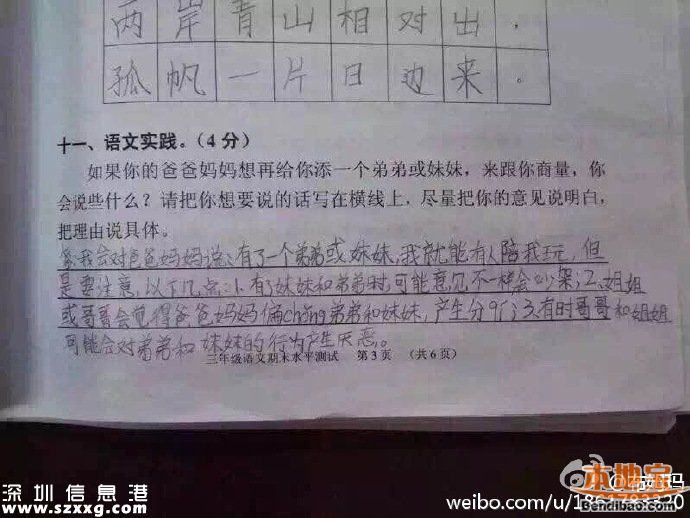 两岸青山相对出,
孤帆一片日边来。
十一、语文实践。(4分)
如果你的爸爸妈妈想再给你添一个弟弟或妹妹，来跟你商量，你
会说些什么？请把你想要说的话写在横线上，尽量把你的意见说明白，
把理由说具体。
我会对爸爸妈妈说:有了一个弟弟或妹妹,我就能有人陪我玩,但
是要注意,以下几点:1、有了妹妹和弟弟时,可能意见不一样会吵架;2、姐姐
或哥哥会觉得爸爸妈妈偏chǒng弟弟和妹妹,产生分qí;3、有时哥哥和姐姐
可能会对弟弟和妹妹的行为产生厌恶。
三年级语文期末水平测试 第3页 (共6页)
深圳信息港
www.szxxg.com
本地宝
Bendibao.com
weibo.com/u/